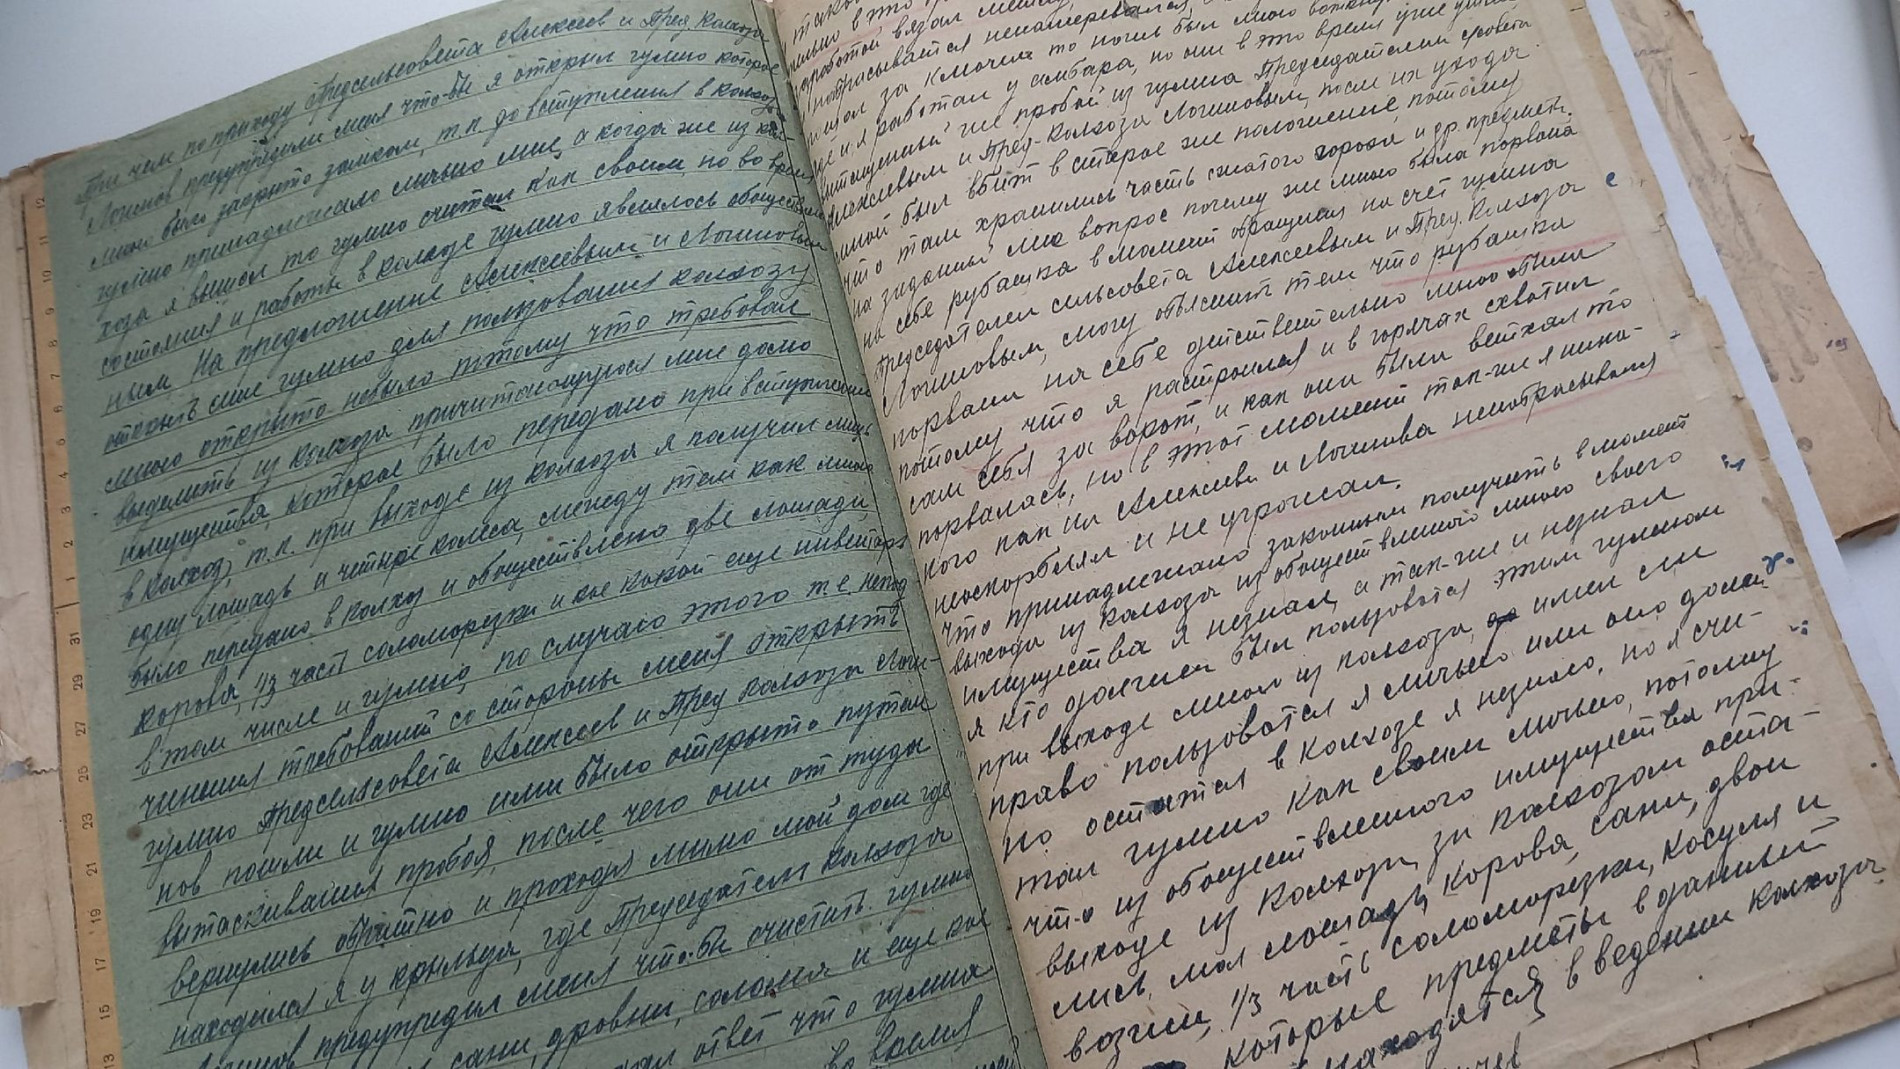 При чем по приходу Предсельсовета Алексеев и Пред. Колхоза
предупредили меня что-бы я открыл гумно которое
мной было закрыто замком, т.к. до вступления в колхоз
гумно принадлежало лично мне, а когда же из кол-
хоза я вышел то гумно считал как своим, но во время
состояния и работы в колхозе гумно являлось обществен-
ным. На предложение Алексеевым и Логиновым
открыть мне гумно для пользования колхозу
мною открыто небыло потому что требовал
выделить из колхоза причитающуюся мне долю
имущества, которое было передано при вступлении
в колхоз, т.к. при выходе из колхоза я получил лишь
одну лошадь и четыре колеса, между тем как мною
было передано в колхоз и обобществлено две лошади,
корова, 1/3 част соломорезки и кое какой еще инвентарь
в том числе и гумно, по случаю этого т.е. непод-
чинения требований со стороны меня открыть
гумно Предсельсовета Алексеев и Пред колхоза Логи-
нов пошли и гумно ими было открыто путем
вытаскивания пробоя, после чего они от туда
вернулись обратно и проходя мимо мой дом где
находился я у крыльца, где Председатель колхоза
Логинов предупредил меня что-бы очистить гумно
сани, дровни, солома и еще кое
дал ответ что гумна
во время
работой
набрасывается ненамеревался,
за ключом то
и я работал у амбара, но они в это время уже
вытащенный же пробой из гумна Председателем с/совета
Алексеевым и Пред-Колхоза Логиновым, после их ухода
мной был вбит в старое же положение, потому
что там хранились часть сжатого гороха и др. предмет.
на заданный мне вопрос почему же мною была порвана
на себе рубашка в момент обращения на счет гумна
Председателем сельсовета Алексеевым и Пред. Колхоза
Логиновым, могу объяснить тем что рубашка
порвали на себе действительно мною были
потому что я растроился и в горячах схватил
сам себя за ворот, и как они были ветхая то
порвалась, но в этот момент так-же я нико-
кого как на Алексеева и Логинова ненабрасывался
неоскорблял и не угрожал.
что принадлежало законным получить в момент
выхода из колхоза из обобществленного мною своего
имущества я незнал, а так-же и незнал
я кто должен был пользоватся этим гумном
при выходе мной из колхоза, имел ли
право пользоватся я лично или оно долж-
но остатся в колхозе я незнаю, но я счи-
тал гумно как своим лично, потому
что из обобществленного имущества при-
выходе из колхоза, за колхозом оста-
лись, моя лошадь, корова, сани, двои
возжи, 1/3 часть соломорезки, косуля и
которые предметы в данный
находятся в ведении колхоза.